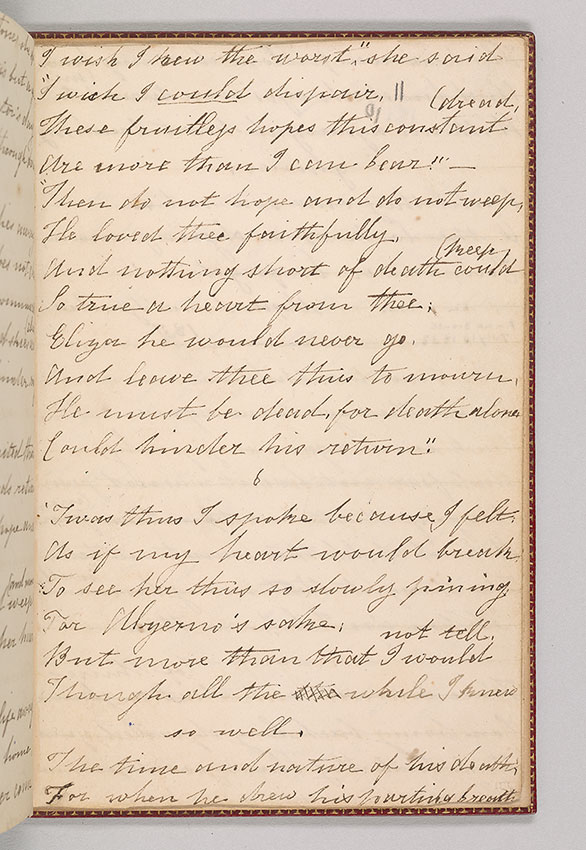 I wish I knew the worst," she said
"I wish I could dispair.
(dread,
These fruitless hopes this constant
Are more than I can bear!" —
"Then do not hope and do not weep,
He loved thee faithfully,
(keep
And nothing short of death could
So true a heart from thee;
Eliza he would never go.
And leave thee thus to mourn,
He must be dead, for death alone
Could hinder his return".
6
'Twas thus I spoke because I felt
As if my heart would break
To see her thus so slowly pining
For Alzerno's sake;
not tell,
But more than that I would
Though all the while I knew
so well,
The time and nature of his death,
For when he drew his parting breath